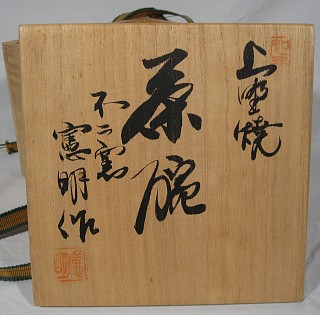 上野焼
茶碗
不二窯
憲明作